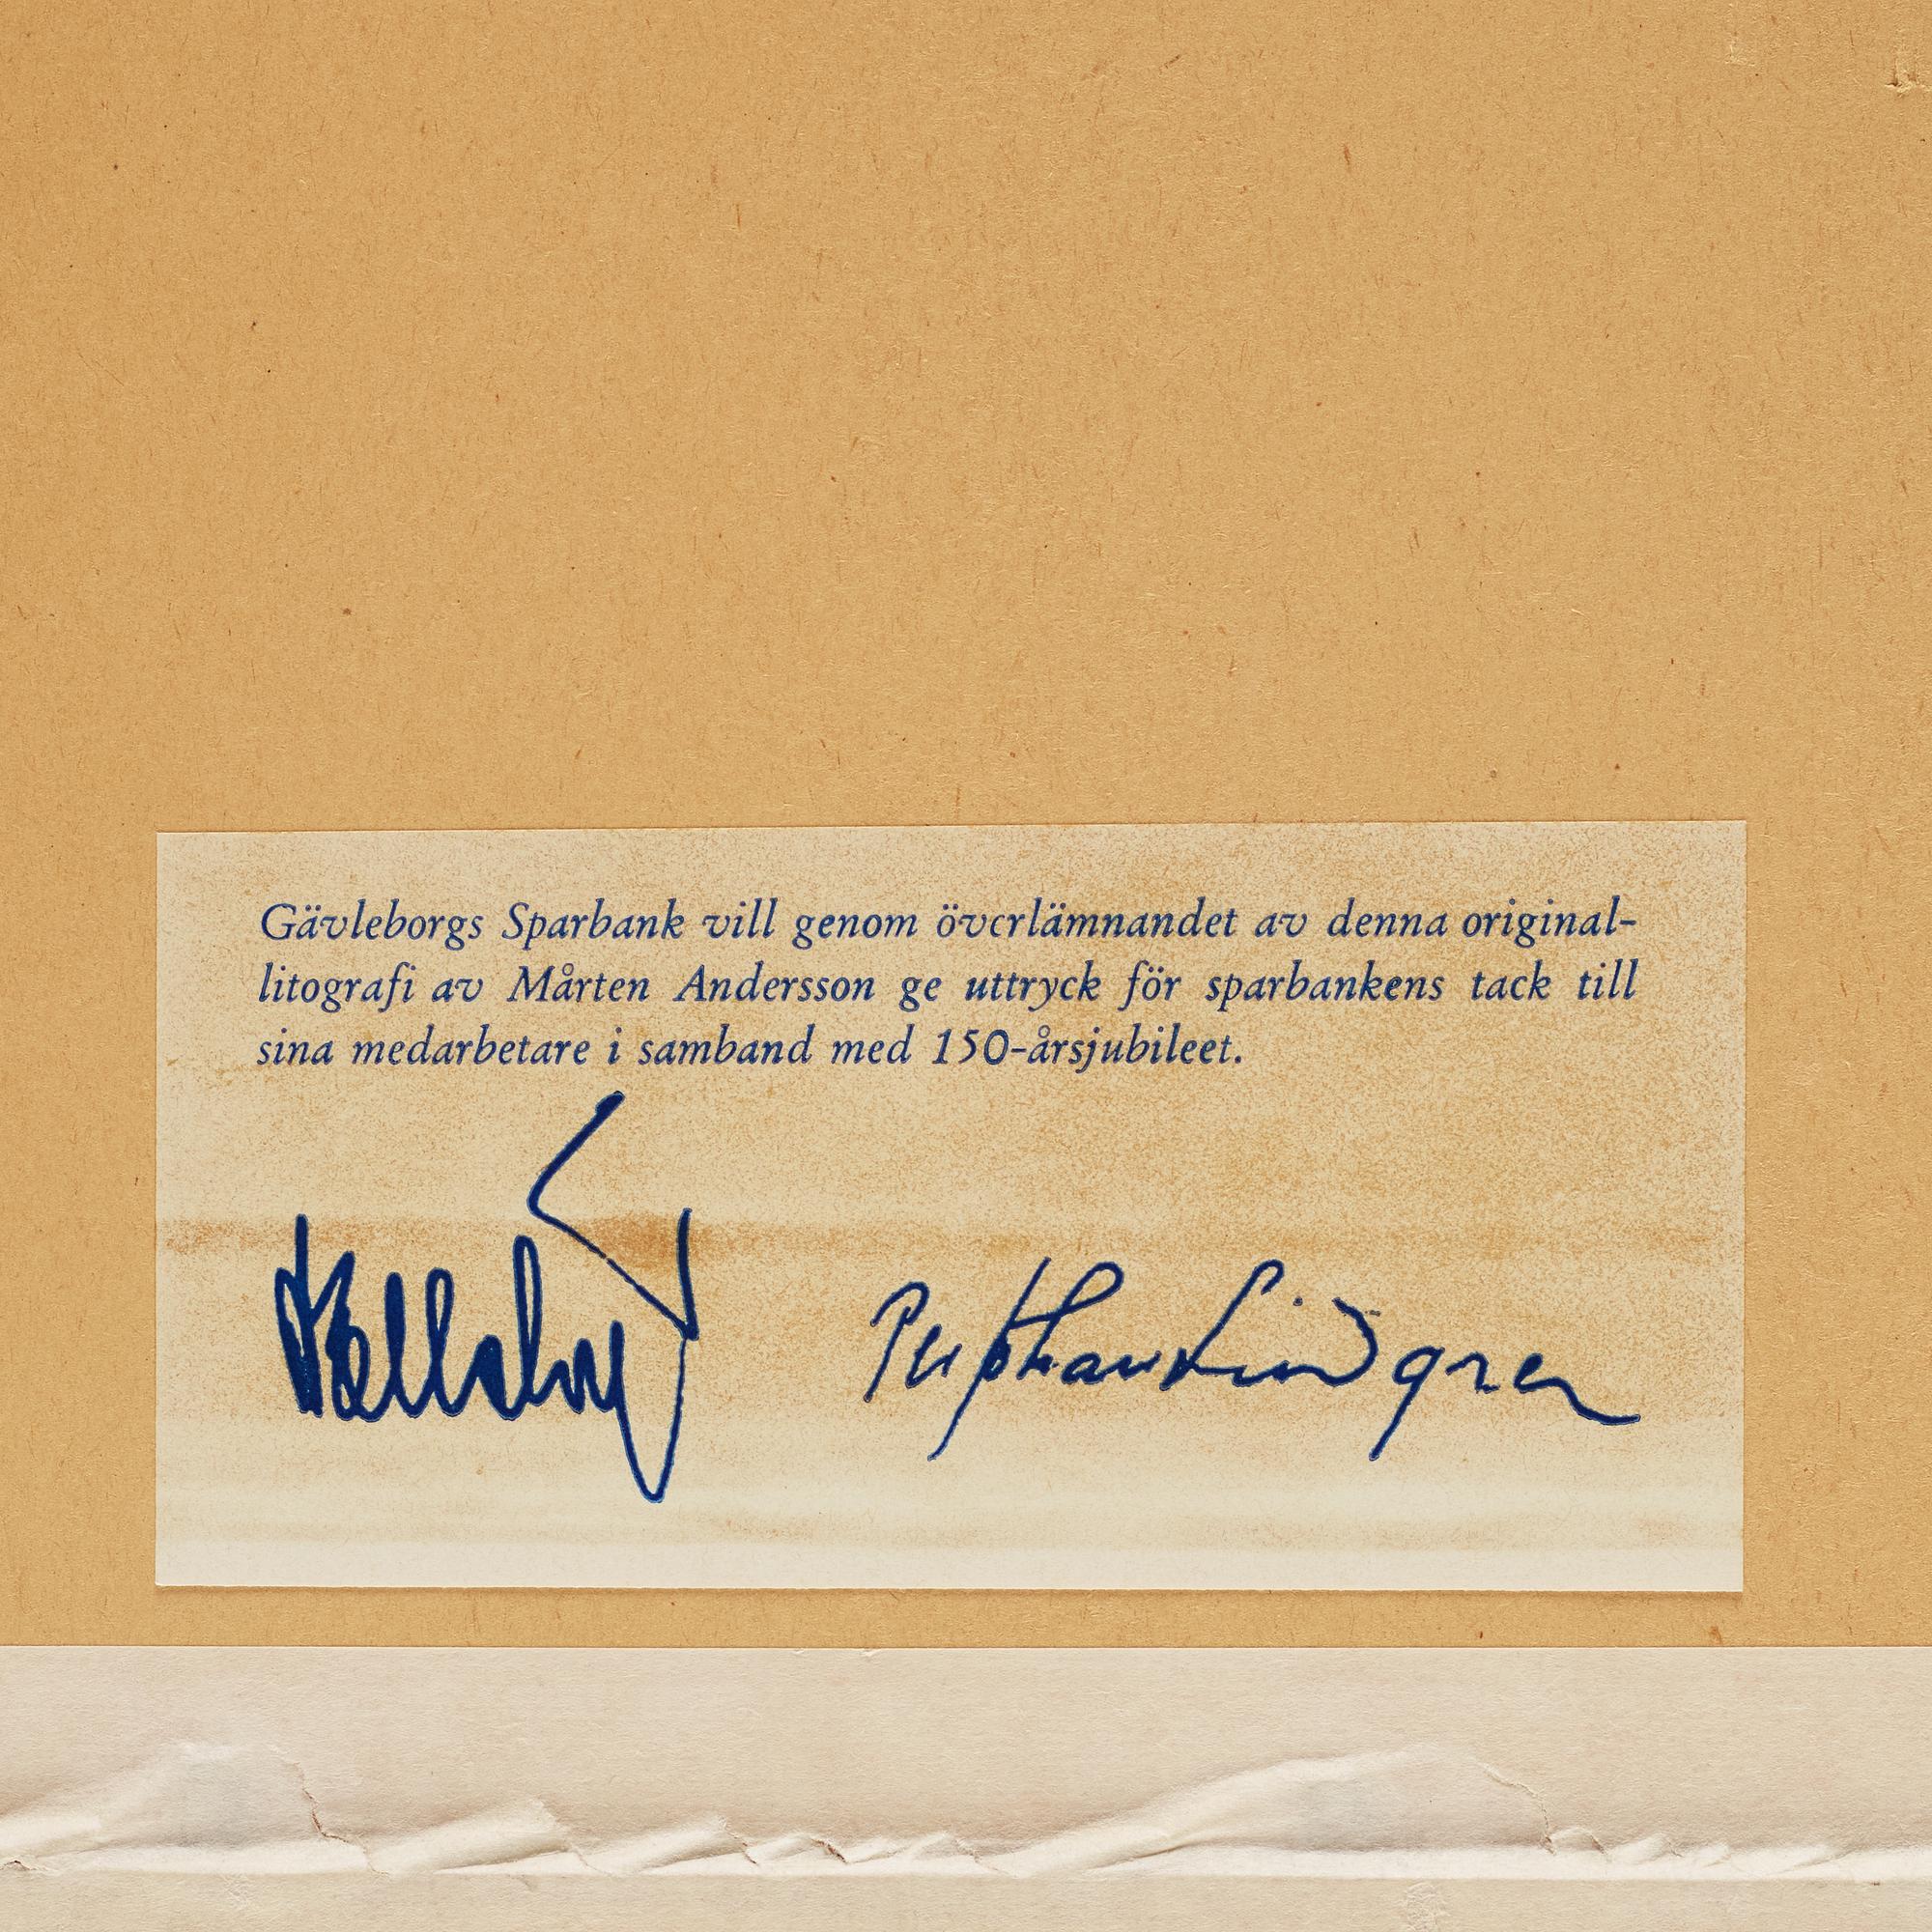 Gävleborgs Sparbank vill genom övcrlämnandet av denna original-
litografi av Mårten Andersson ge uttryck för sparbankens tack till
sina medarbetare i samband med 150-årsjubileet.
Lindgren